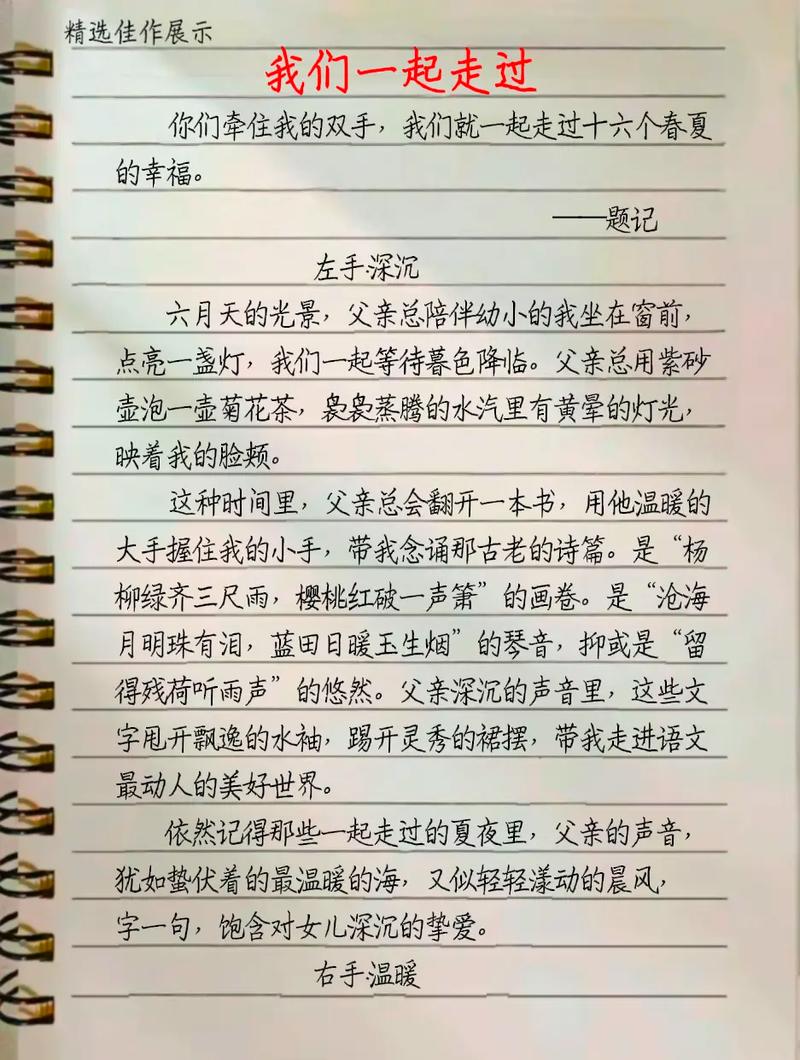 精选佳作展示
我们一起走过
你们牵住我的双手，我们就一起走过十六个春夏
的幸福。
——题记
左手·深沉
六月天的光景，父亲总陪伴幼小的我坐在窗前，
点亮一盏灯，我们一起等待暮色降临。父亲总用紫砂
壶泡一壶菊花茶，袅袅蒸腾的水汽里有黄晕的灯光，
映着我的脸颊。
这种时间里，父亲总会翻开一本书，用他温暖的
大手握住我的小手，带我念诵那古老的诗篇。是“杨
柳绿齐三尺雨，樱桃红破一声箫”的画卷。是“沧海
月明珠有泪，蓝田日暖玉生烟”的琴音，抑或是“留
得残荷听雨声”的悠然。父亲深沉的声音里，这些文
字甩开飘逸的水袖，踢开灵秀的裙摆，带我走进语文
最动人的美好世界。
依然记得那些一起走过的夏夜里，父亲的声音，
犹如蛰伏着的最温暖的海，又似轻轻漾动的晨风，
字一句，饱含对女儿深沉的挚爱。
右手·温暖